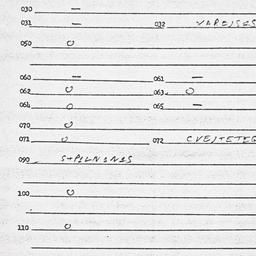 030 —
031 — 032
050 O
060 — 061 —
062 O 063. O
064 O 065 —
070 O
071 O 072
090
100 O
110 O